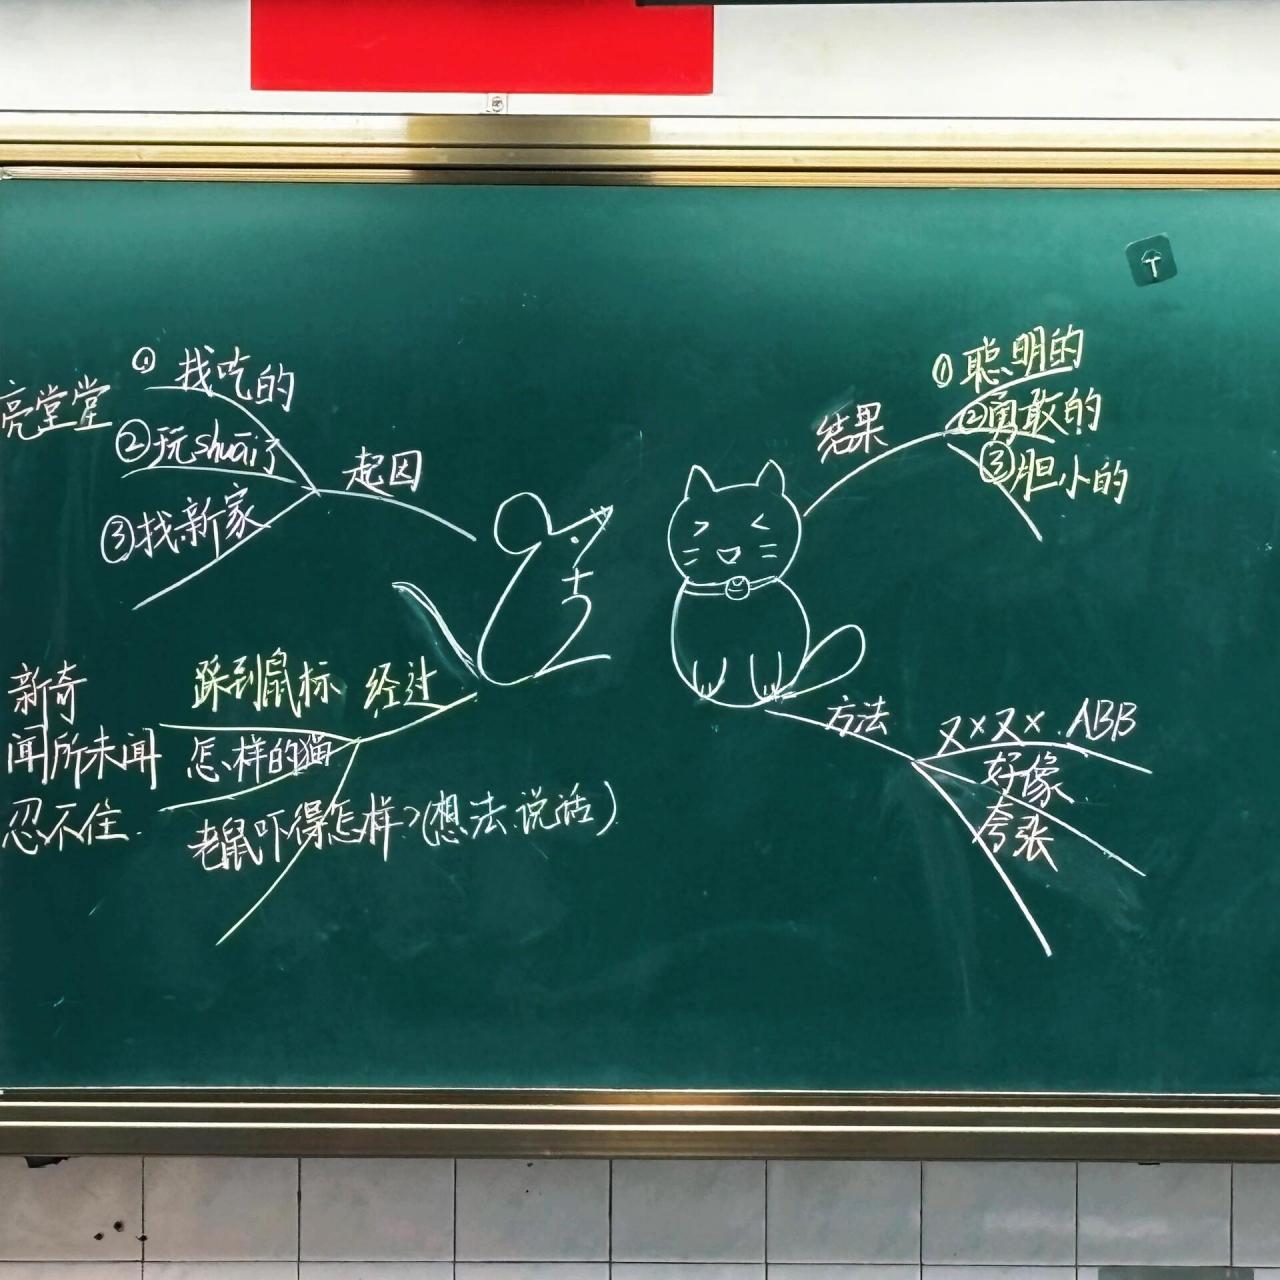 亮堂堂
① 找吃的
②玩shuǎi了
③找新家
起因
新奇
闻所未闻
忍不住
踩到鼠标
经过
怎样的猫
老鼠吓得怎样?(想法.说话)
结果
①聪明的
②勇敢的
③胆小的
方法
又×又×.ABB
好像
夸张